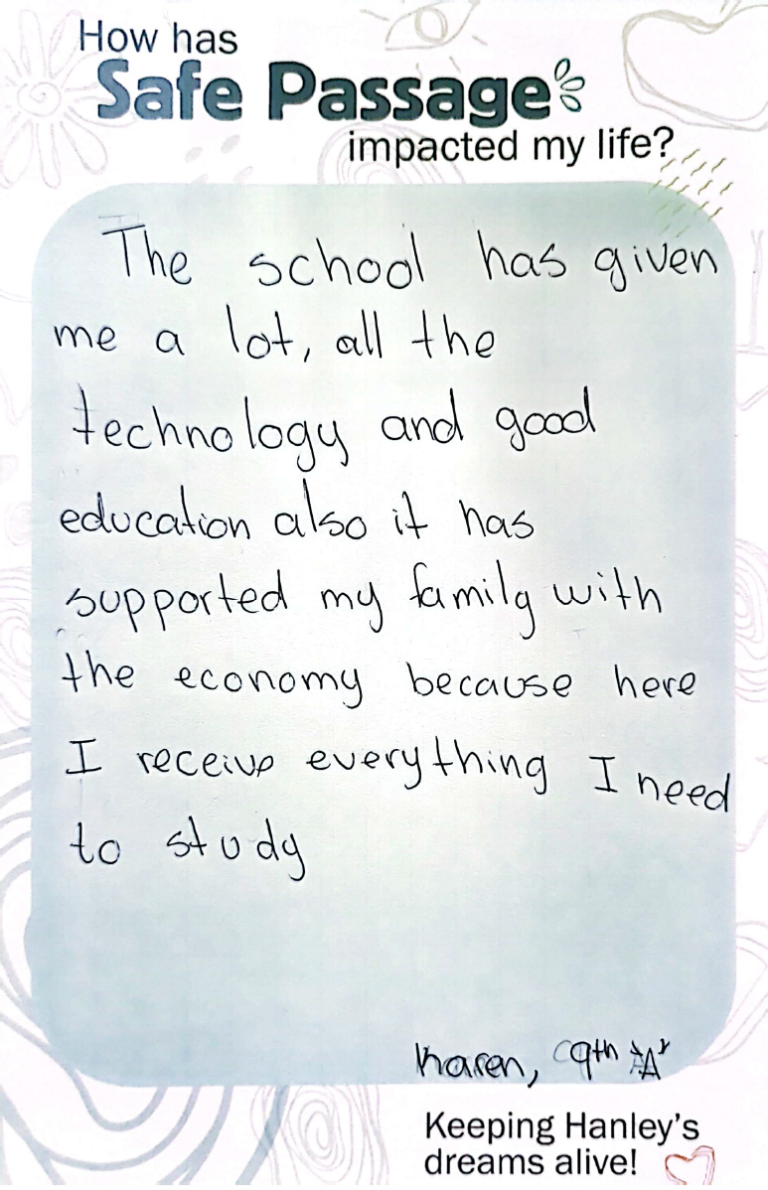 How has
Safe Passage
impacted my life?
The school has given
me a lot, all the
technology and good
education also it has
supported my family with
the economy because here
I receive everything I need
to study
Karen, 9th "A"
Keeping Hanley's
dreams alive!